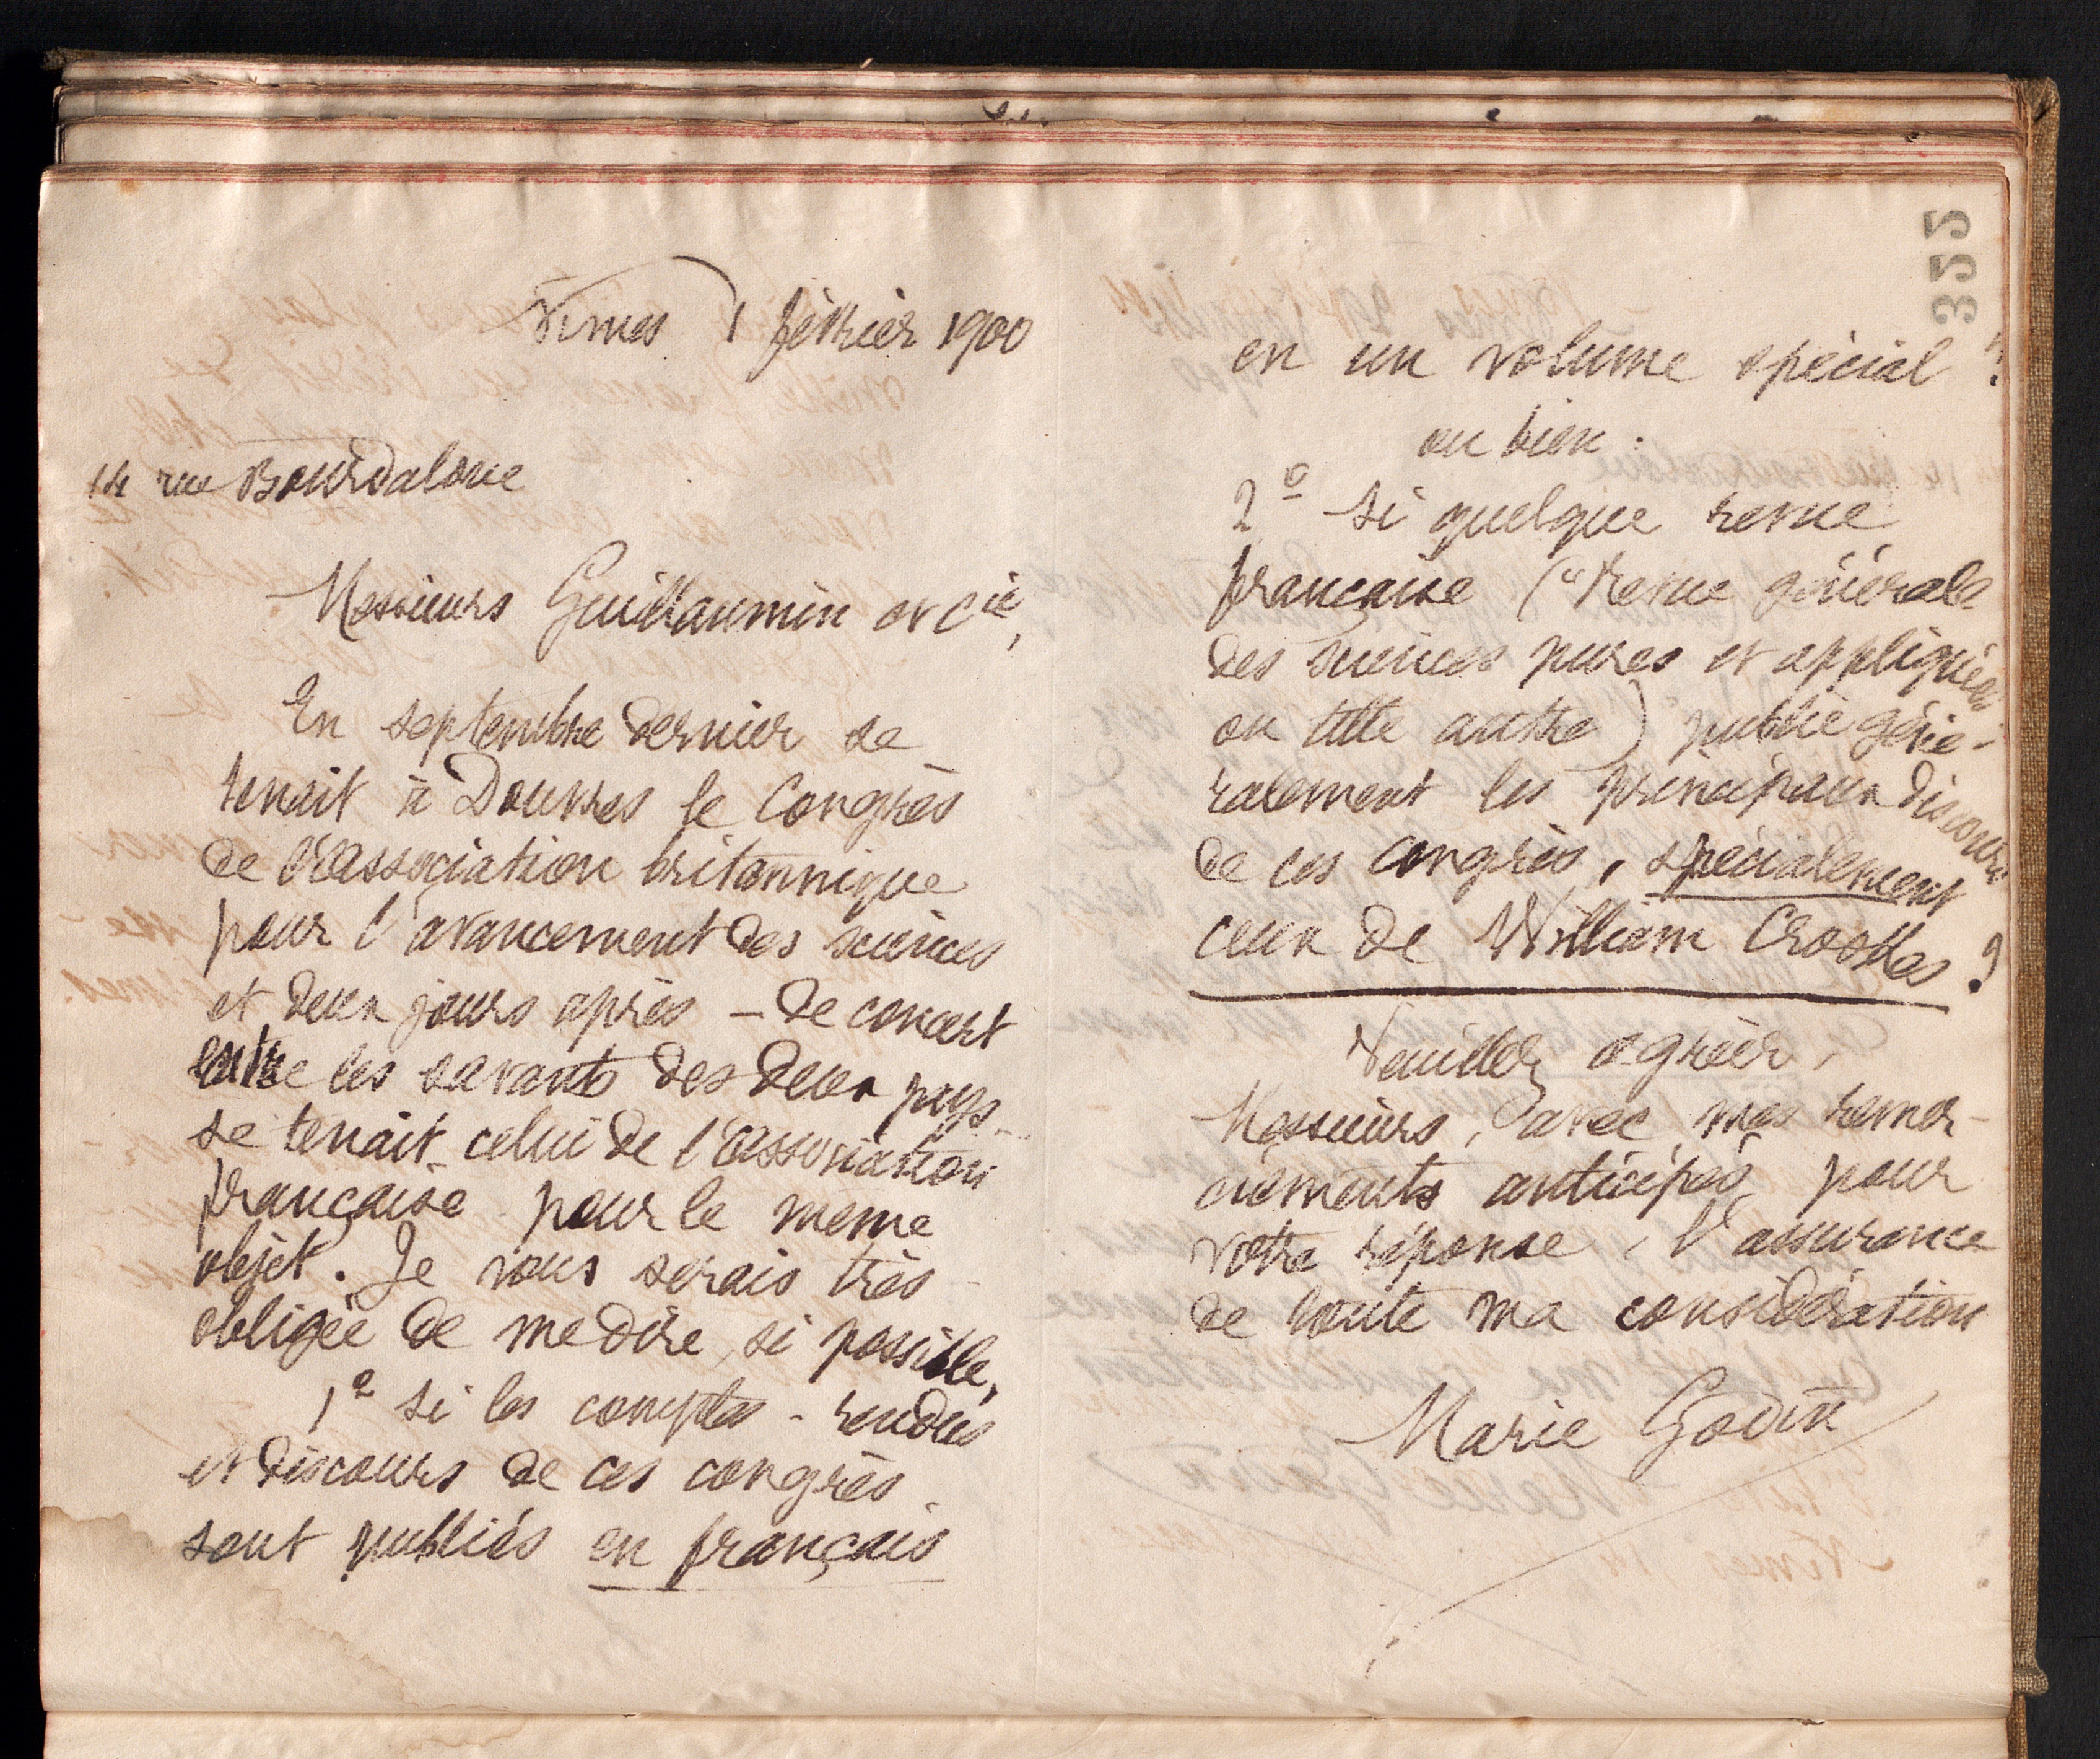 Nimes 1 février 1900
14 rue Bourdaloue
Messieurs Guillaumin et Cie,
En septembre dernier se
tenait à Douvres le Congrès
de l'association britannique
pour l'avancement des sciences
et deux jours après – de concert
entre les savants des deux pays –
se tenait celui de l'association
française pour le meme
objet. Je vous serais très
obligée de me dire, si possible,
1º si les comptes-rendus
et discours de ces congrès
sont publiés en français
en un volume spécial ?
ou bien :
2º si quelque revue
française ("Revue générale
des sciences pures et appliquées"
ou telle autre) publie géné-
ralement les principaux discours
de ces congrès, spécialement
ceux de William Crookes ?
Veuillez agréer,
Messieurs, avec mes remer-
ciements anticipés pour
votre réponse, l'assurance
de toute ma considération
Marie Godin
355